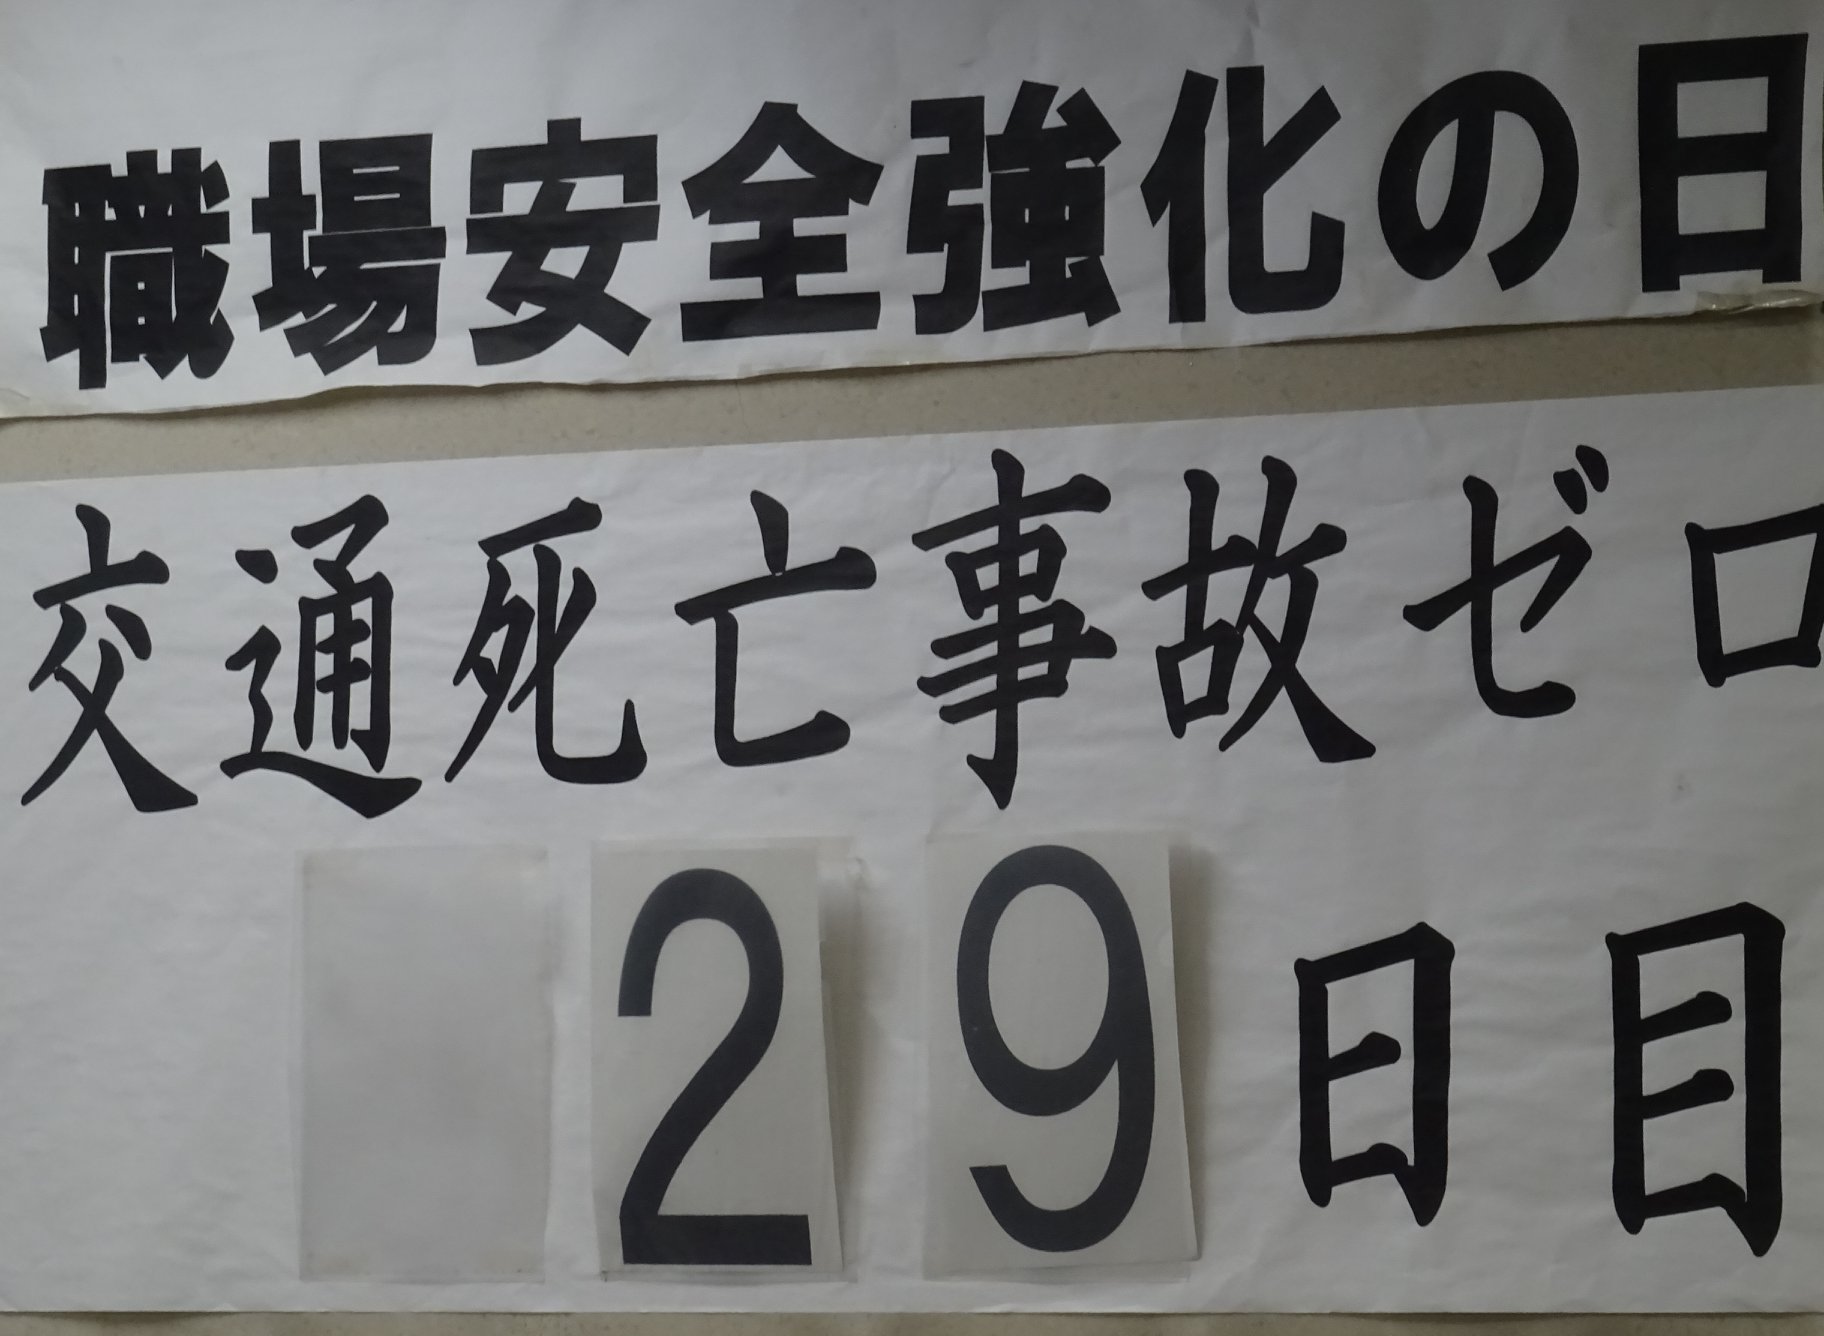 職場安全強化の日
交通死亡事故ゼロ
29日目